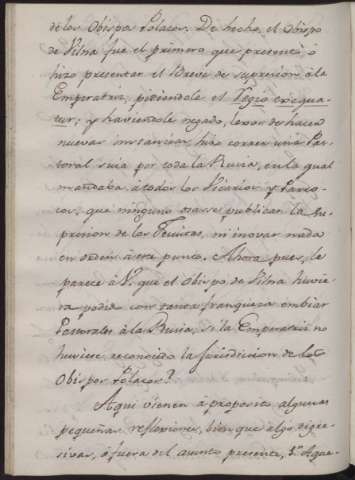 de los Obispos Polacos. De hecho, el Obispo
de Vilna fue el primero que presentó ó
hizo presentar el Breve de supresion á la
Emperatriz, pidiendole el Regio exequa-
tur; y haviendole negado, lexos de hacer
nuevas instancias, hizo correr una Pas-
toral suia por toda la Rusia, en la qual
mandaba á todos los Vicarios y Parro-
cos, que ninguno osase publicar la su-
presion de los Jesuitas, ni inovar nada
en orden á este punto. Ahora pues, le
parece á V. que el Obispo de Vilna huvie-
ra podido con tanta franqueza embiar
Pastorales á la Rusia, si la Emperatriz no
huviese reconocido la Jurisdiccion de los
Obispos Polacos?
Aqui vienen á proposito algunas
pequeñas reflexiones, bien que algo digre-
sivas, ó fuera del asunto presente, 1.ª Aque-